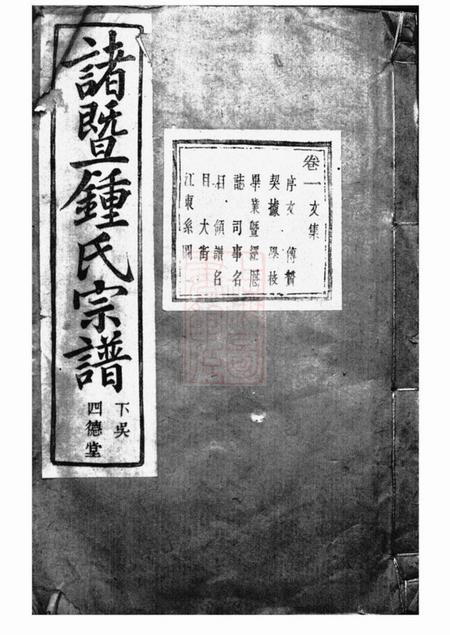 諸暨鍾氏宗譜
下吳
四德堂
卷一文集
序文 傳贊
契據 學校
學業暨經歷
誌 司事名
目 領譜名
目 大
江東系圖